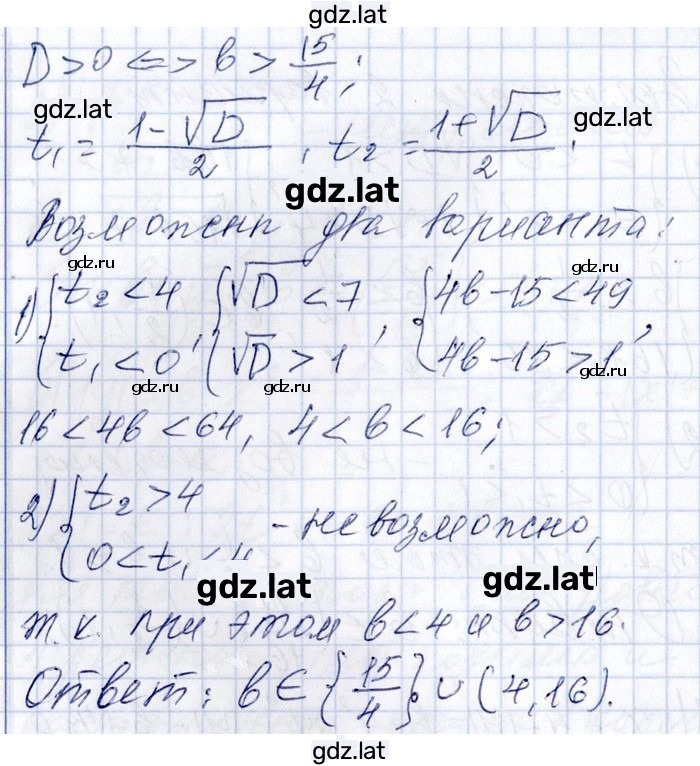 gdz.lat
D > 0 <=> в > 15/4;
gdz.lat
gdz.lat
t₁ = (1 - √D)/2, t₂ = (1 + √D)/2.
gdz.lat
Возможны два варианта:
gdz.ru gdz.ru
1) { t₂ < 4, t₁ < 0, { √D < 7, √D > 1, { 4в - 15 < 49, 4в - 15 > 1,
gdz.ru gdz.ru
16 < 4в < 64, 4 < в < 16;
2) { t₂ > 4, 0 < t₁ - невозможно,
gdz.lat gdz.lat
т.к. при этом в < 4 и в > 16.
Ответ: в ∈ {15/4} ∪ (4, 16).
gdz.lat